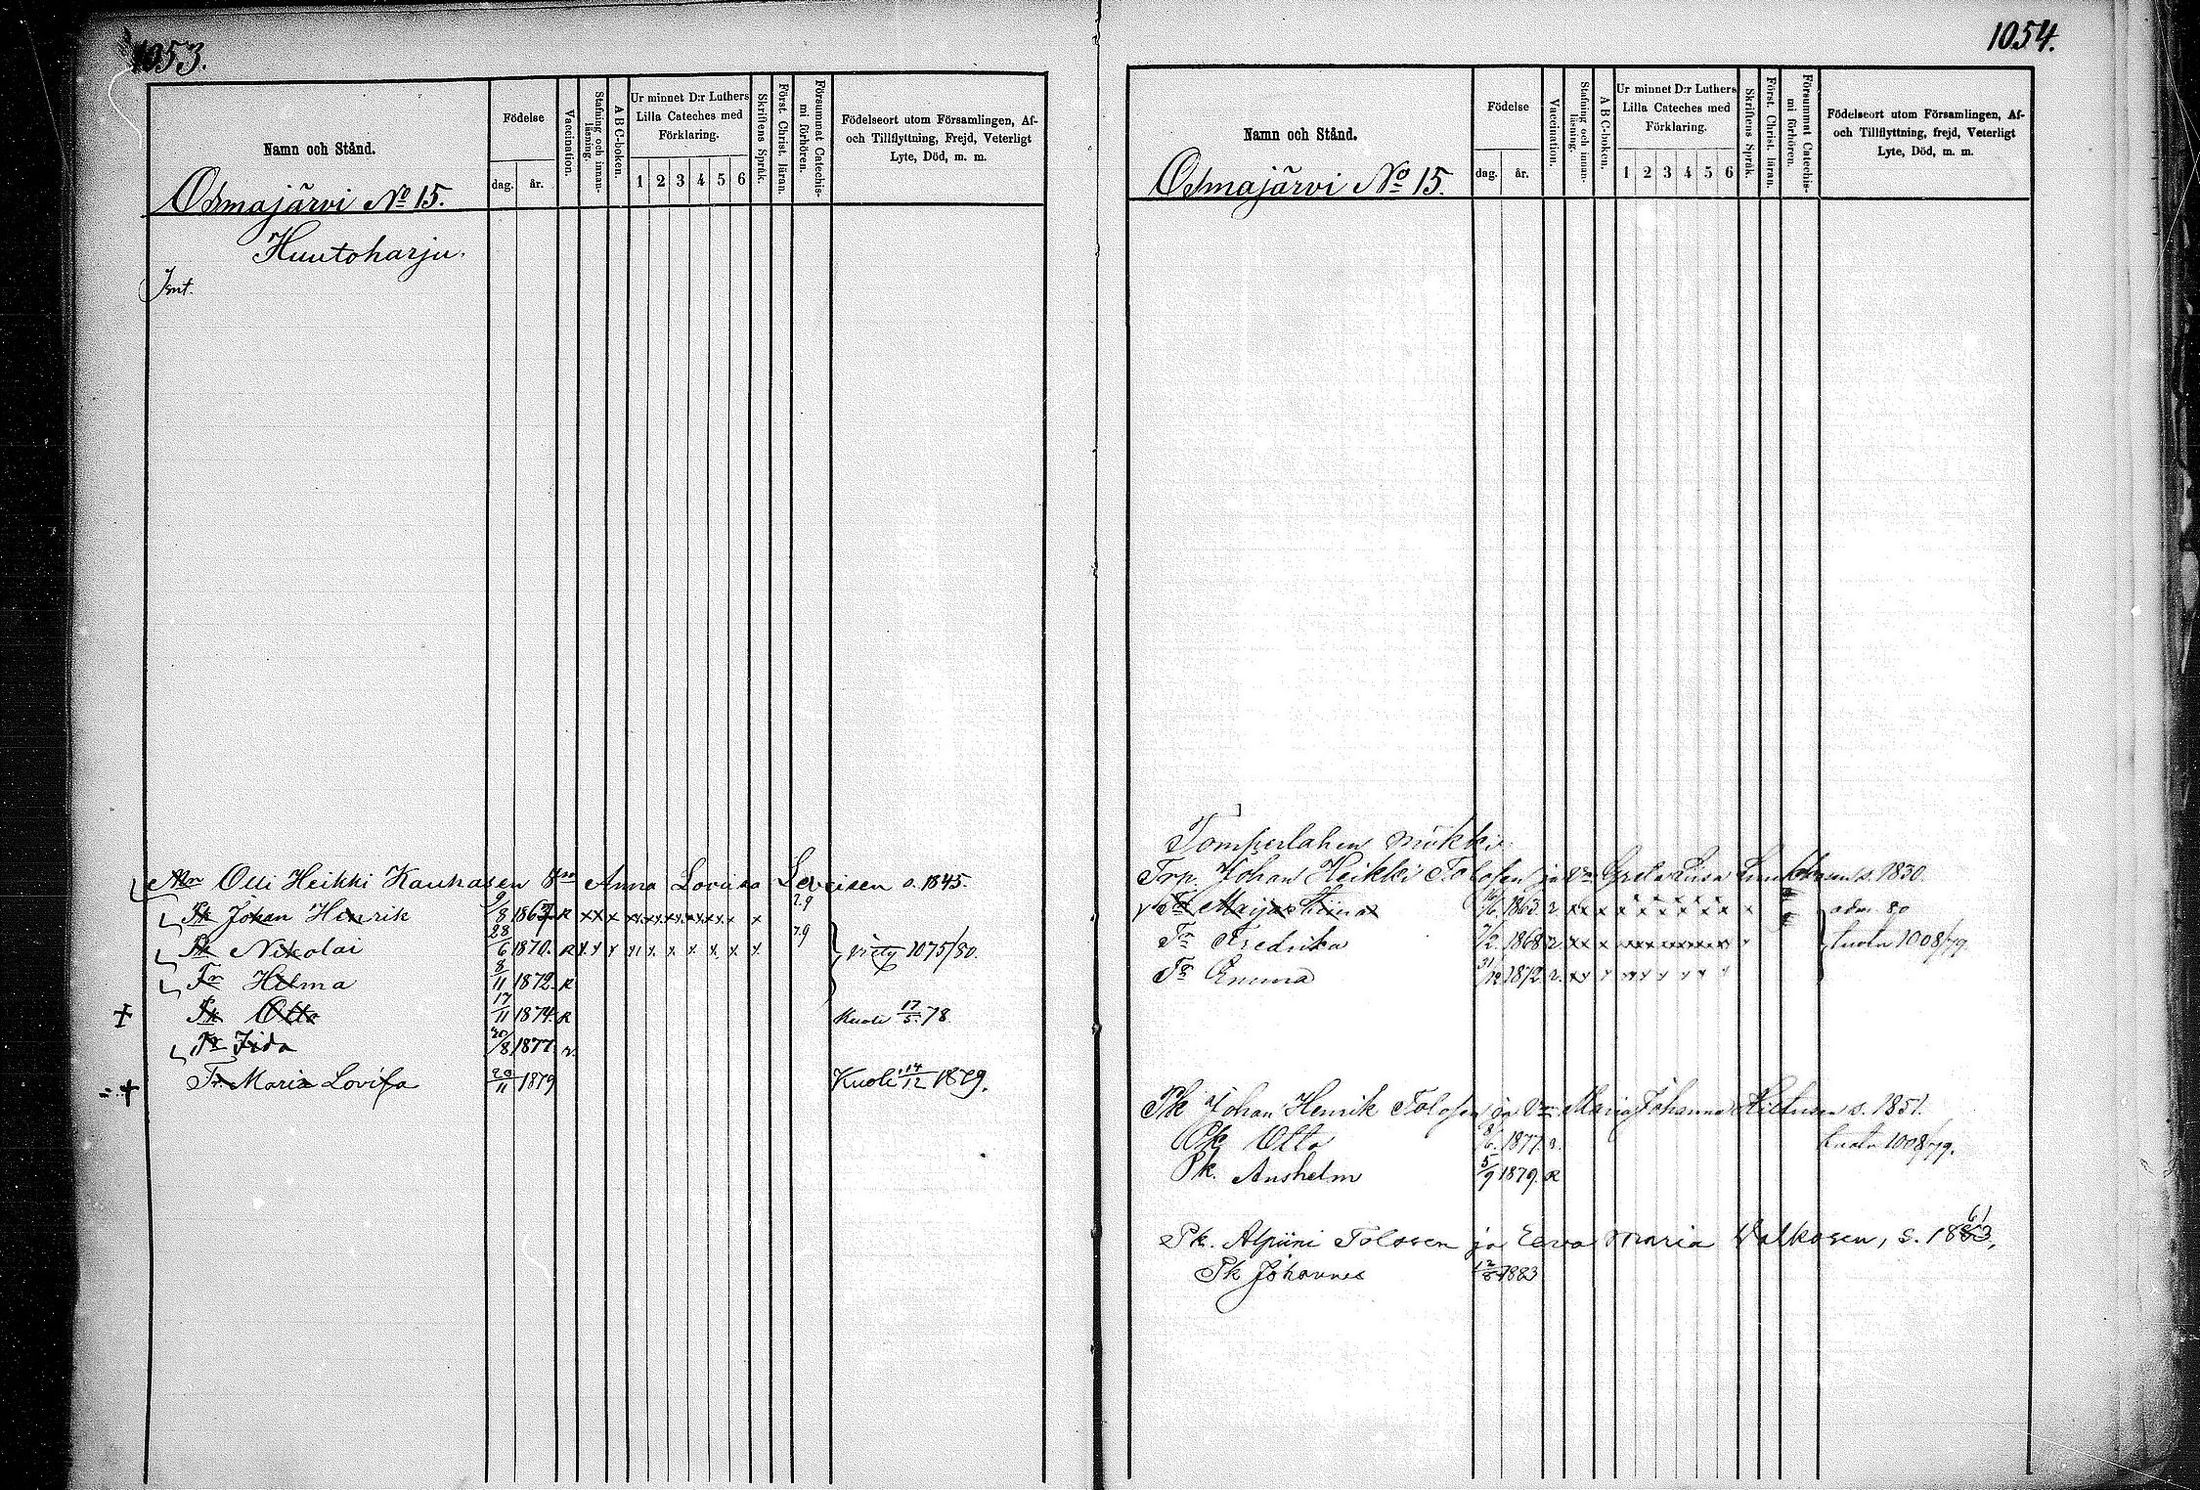 1053.
Namn och Stånd.
Födelse
dag. år.
Vaccination.
Stafning och innanläsning.
A B C-boken.
Ur minnet D:r Luthers
Lilla Cateches med
Förklaring.
1 2 3 4 5 6
Skriftens Språk.
Först. Christ. läran.
Försummat Catechismi förhören.
Födelseort utom Församlingen, Af-
och Tillflyttning, Frejd, Veterligt
Lyte, Död, m. m.
Odmajärvi No 15.
Huutoharju.
Olli Heikki Kauhasen Vmo Anna Loviisa Leveisen s. 1845.
Pk Johan Henrik 9/8 1867 R x x x x x x x x x x 79
Pk Nikolai 28/6 1870. R x x x x x x x x x x 79 viety 1075/80.
Tr Helma 8/11 1872. R
Pk Otto 17/11 1874. R Kuoli 17/5. 78
Tr Fida 20/8 1877 r.
Tr Maria Lovisa 20/11 1879 Kuoli 14/12 1879.
1054.
Namn och Stånd.
Födelse
dag. år.
Vaccination.
Stafning och innanläsning.
A B C-boken.
Ur minnet D:r Luthers
Lilla Cateches med
Förklaring.
1 2 3 4 5 6
Skriftens Språk.
Först. Christ. läran.
Försummat Catechismi förhören.
Födelseort utom Församlingen, Af-
och Tillflyttning, frejd, Veterligt
Lyte, Död, m. m.
Odmajärvi No 15.
Tomperlahen mökki.
Trp. Johan Heikki Tolosen ja Vmo Greta Liisa s. 1830.
Tr Maija Stiina /6 1863. r. x x x x x x x x x x adm. 80
Tr Fredrika 7/2. 1868 r. x x x x x x x x x x tuotu 1008/79.
Tr Emma 31/12 1872. r. x x x x x x x x x
Pk Johan Henrik Tolosen ja Vmo Maria Johanna Hiltusen s. 1851.
Pk Otto 8/6. 1877. r. tuotu 1008/79.
Pk. Anshelm 5/9 1879. R
Pk. Alpiini Tolosen ja Eeva Maria Valkosen, s. 1863, 61
Pk Johannes 12/8 1883